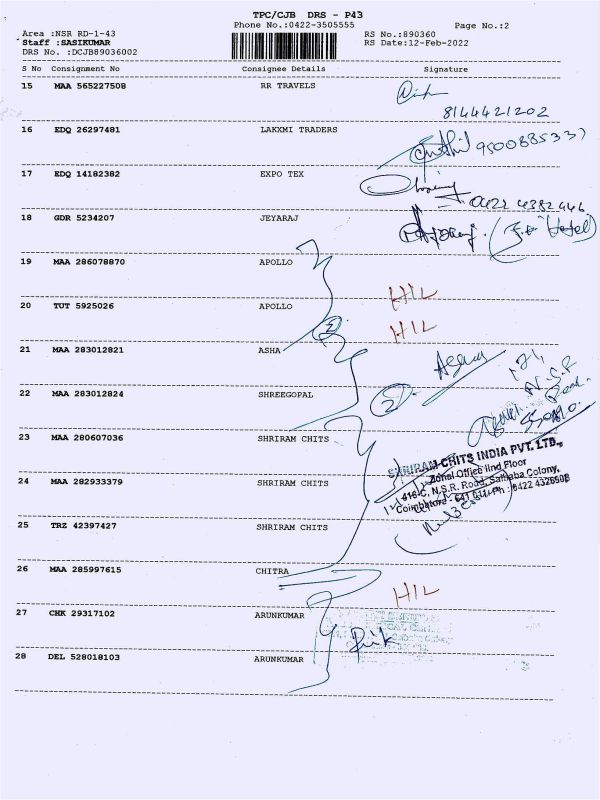 TPC/CJB DRS - P43
Phone No.:0422-3505555
Page No.:2
Area :NSR RD-1-43
RS No.:890360
Staff :SASIKUMAR
RS Date:12-Feb-2022
DRS No. :DCJB89036002
S No Consignment No Consignee Details Signature
15 MAA 565227508 RR TRAVELS
8144421202
16 EDQ 26297481 LAKXMI TRADERS
17 EDQ 14182382 EXPO TEX
0422 4382446
18 GDR 5234207 JEYARAJ
19 MAA 286078870 APOLLO
HIL
20 TUT 5925026 APOLLO
HIL
21 MAA 283012821 ASHA
22 MAA 283012824 SHREEGOPAL
2
23 MAA 280607036 SHRIRAM CHITS
SHRIRAM CHITS INDIA PVT. LTD.,
Zonal Office IInd Floor
24 MAA 282933379 SHRIRAM CHITS
416-C, N.S.R. Road, Saibaba Colony,
Coimbatore - 641 011 Ph : 0422 4326508
25 TRZ 42397427 SHRIRAM CHITS
26 MAA 285997615 CHITRA
HIL
27 CHK 29317102 ARUNKUMAR
28 DEL 528018103 ARUNKUMAR